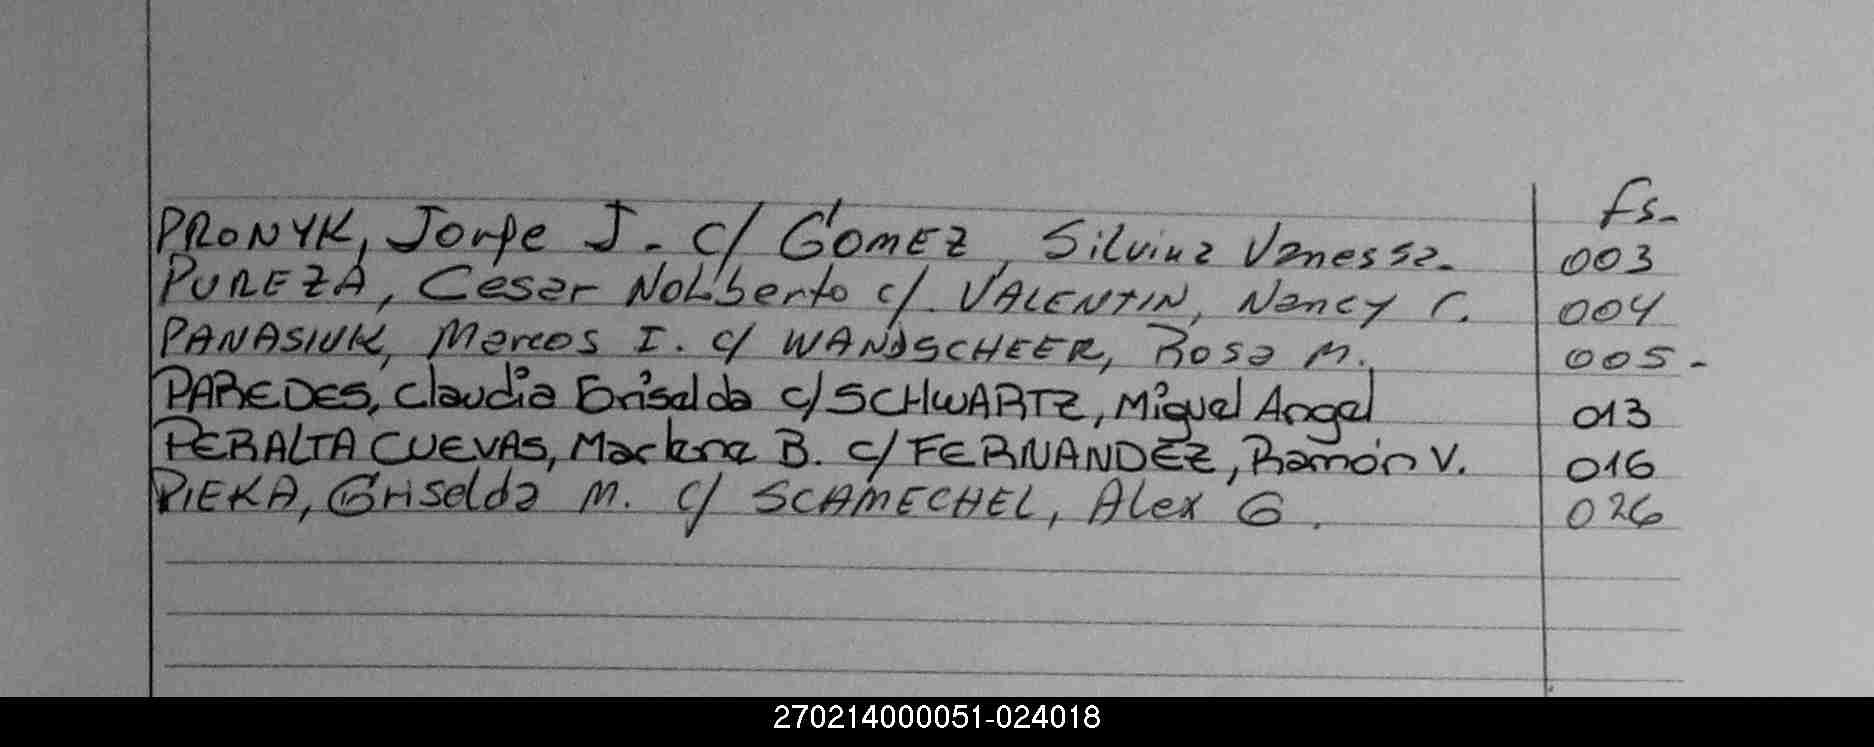 fs-
PRONYK, Jorge J. c/ GÓMEZ, Silvina Vanessa. 003
PUREZA, Cesar Norberto c/ VALENTIN, Nancy C. 004
PANASIUK, Marcos I. c/ WANDSCHEER, Rosa M. 005-
PAREDES, Claudia Griselda c/ SCHWARTZ, Miguel Angel 013
PERALTA CUEVAS, Marlene B. c/ FERNANDEZ, Ramón V. 016
PIEKA, Griselda M. c/ SCAMECHEL, Alex G. 026
270214000051-024018